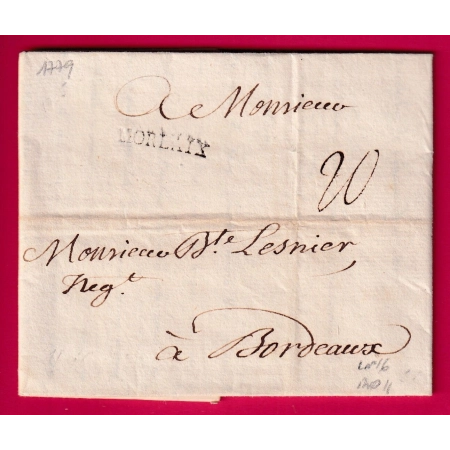 1779
A Monsieur
MORLAIX
20
Monsieur Bte Lesnier
Negt
à Bordeaux